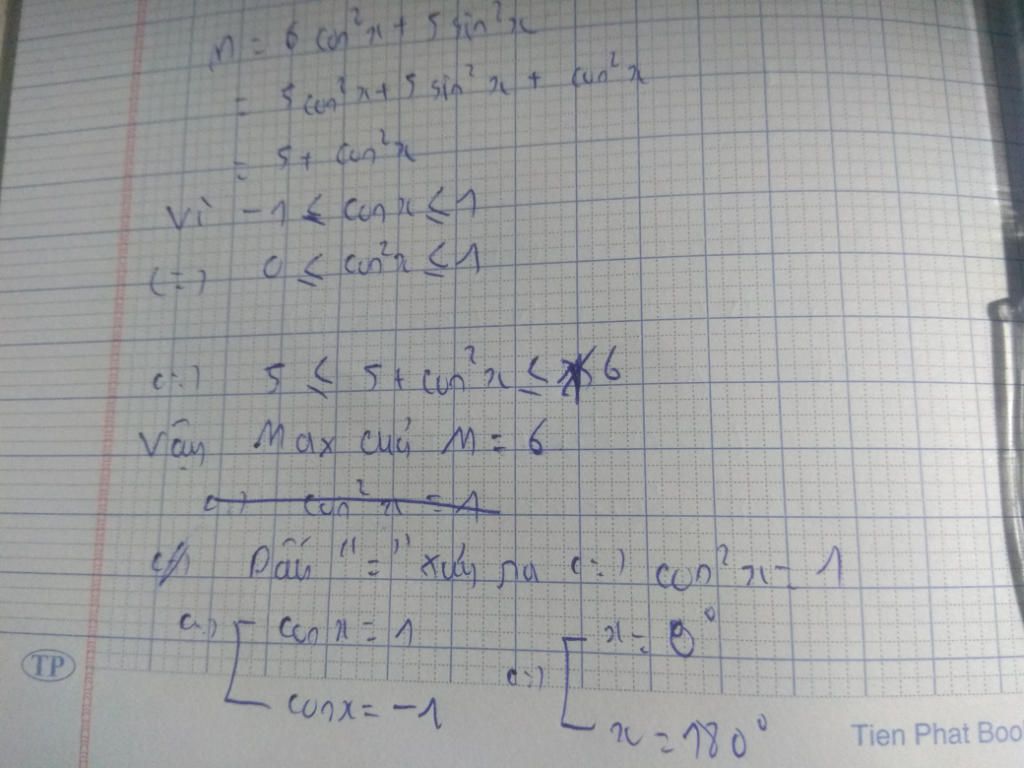 M = 6 cos²x + 5 sin²x
= 5 cos²x + 5 sin²x + cos²x
= 5 + cos²x
Vì -1 ≤ cosx ≤ 1
(=) 0 ≤ cos²x ≤ 1
(=) 5 ≤ 5 + cos²x ≤ 6
Vậy Max của M = 6
(=) cos²x = 1
Dấu "=" xảy ra (=) cos²x = 1
(=) [ cosx = 1
cosx = -1
(=) [ x = 0°
x = 180°
TP
Tien Phat Boo